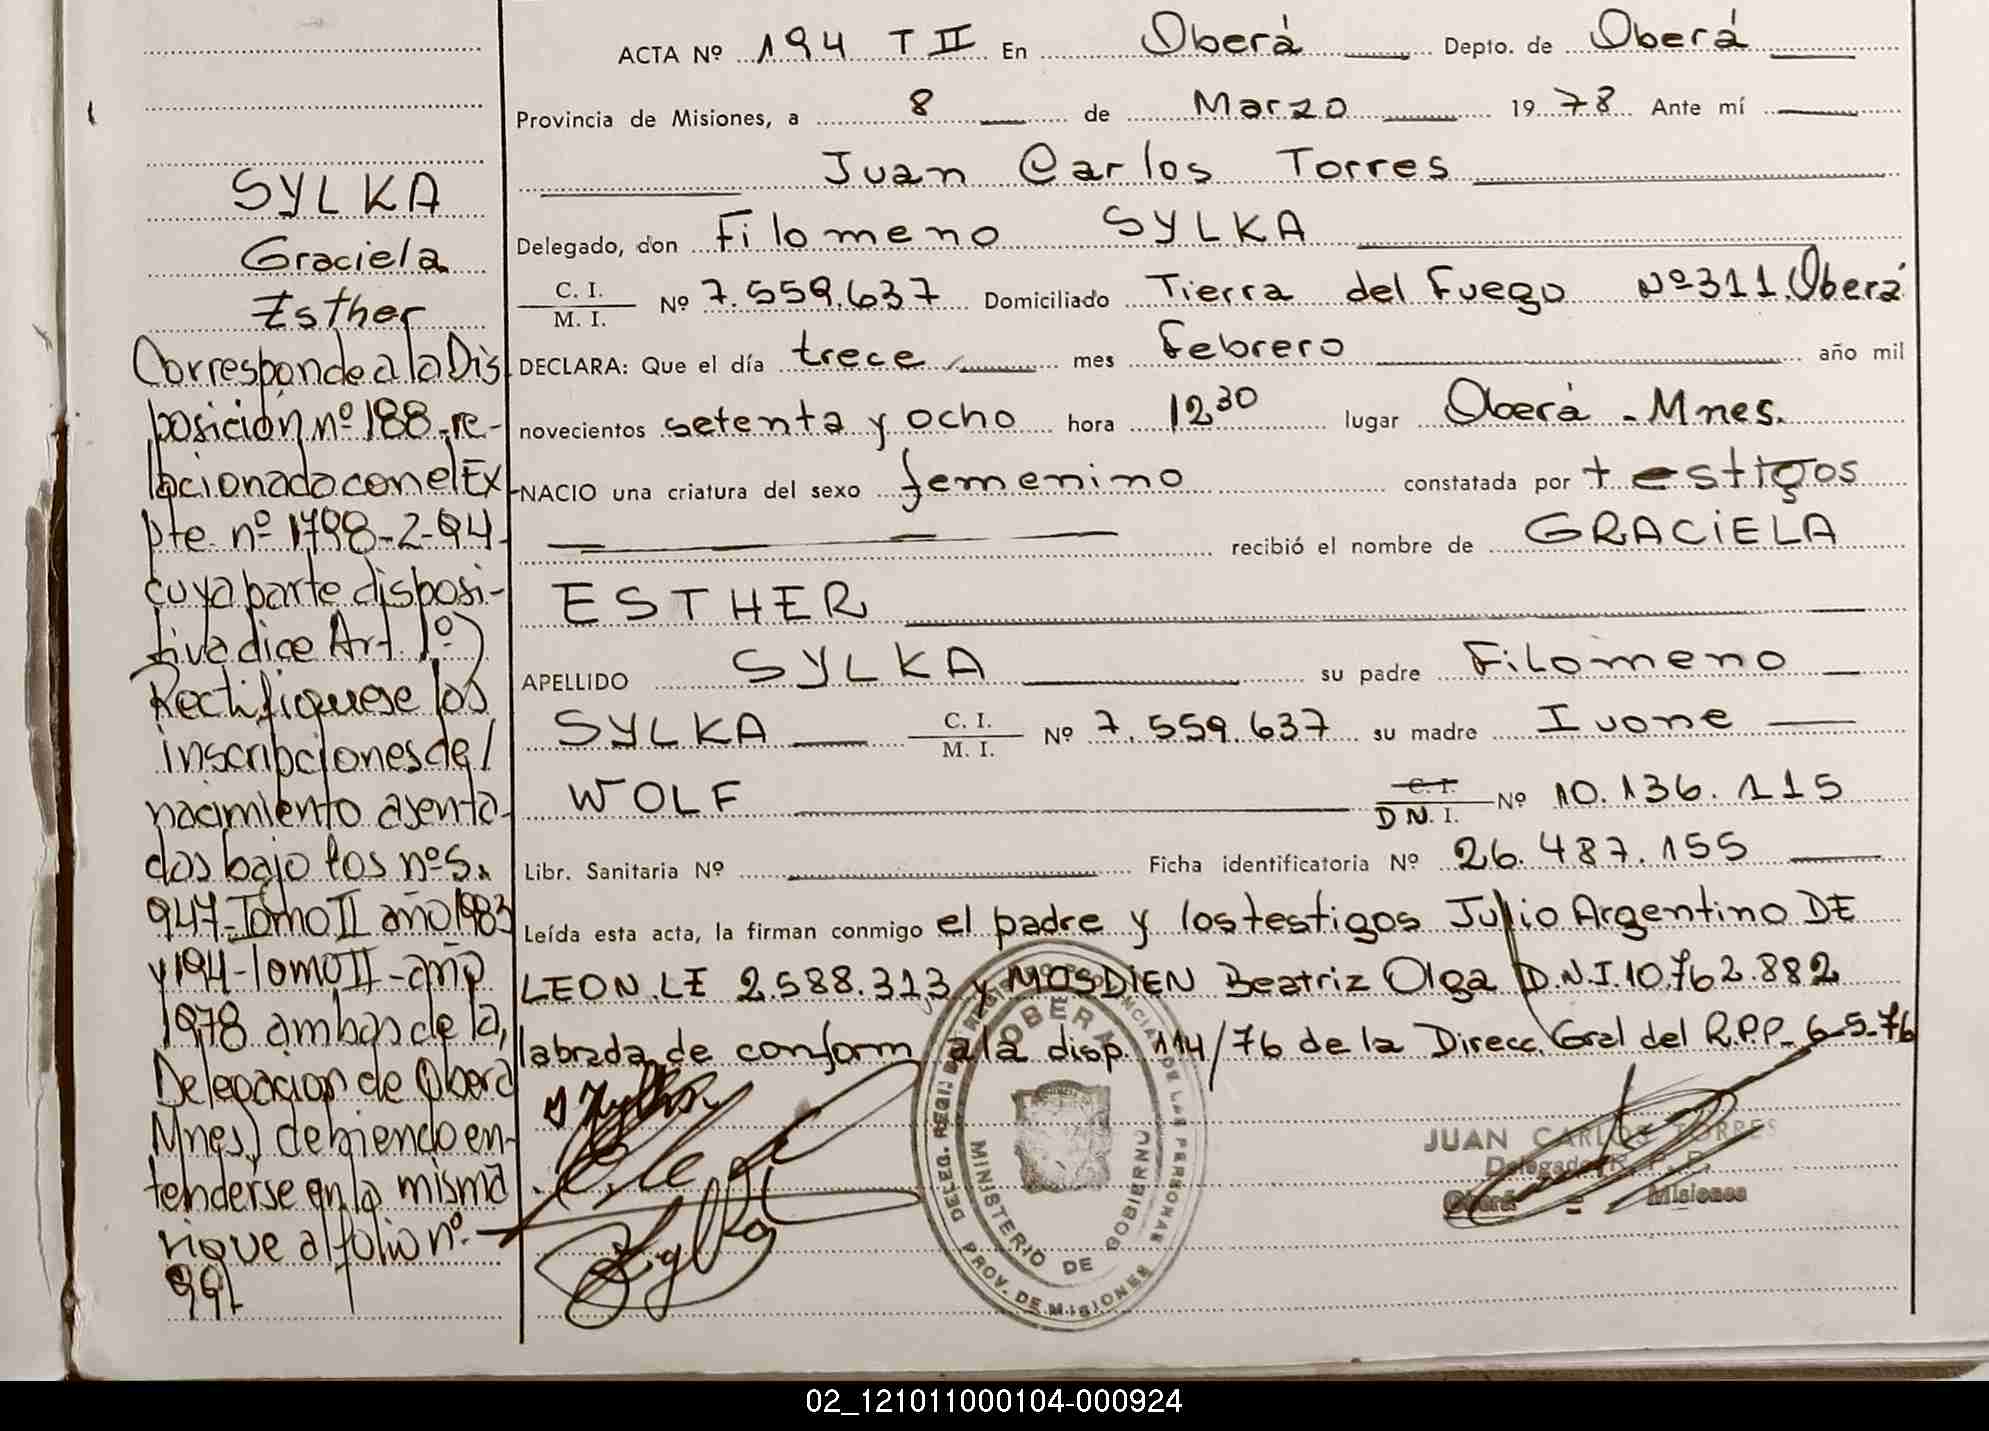 SYLKA
Graciela
Esther
Corresponde a la Dis
posición nº 188 re-
lacionado con el Ex
pte nº 1798-2-94-
cuya parte disposi-
tiva dice Art. 1º)
Rectifiquese las
inscripciones de
nacimiento asenta-
das bajo los nºs.
947-Tomo II año 1983
y 194-Tomo II-año
1978 ambas de la
Delegación de Oberá
Mnes) debiendo en-
tenderse en la misma
que al folio nº-
991
ACTA Nº 194 T II En Oberá Depto. de Oberá
Provincia de Misiones, a 8 de Marzo 1978 Ante mí
Juan Carlos Torres
Delegado, don Filomeno SYLKA
C. I.
M. I. Nº 7.559.637 Domiciliado Tierra del Fuego Nº 311. Oberá
DECLARA: Que el día trece mes Febrero año mil
novecientos setenta y ocho hora 12 30 lugar Oberá - Mnes.
NACIO una criatura del sexo femenino constatada por testigos
recibió el nombre de GRACIELA
ESTHER
APELLIDO SYLKA su padre Filomeno
SYLKA C. I. M. I. Nº 7.559.637 su madre Ivone
WOLF C. I. D N. I. Nº 10.136.115
Libr. Sanitaria Nº Ficha identificatoria Nº 26.487.155
Leída esta acta, la firman conmigo el padre y los testigos Julio Argentino DE
LEON. LE 2.588.313 y MOSDIEN Beatriz Olga D.N.I. 10.762.882
labrada de conform a la disp. 114/76 de la Direcc. Gral del R.P.P. 6-5-76
OBERA
MINISTERIO DE GOBIERNO
PROV. DE MISIONES
JUAN CARLOS TORRES
Delegado R. P. P.
Oberá = Misiones
02_121011000104-000924